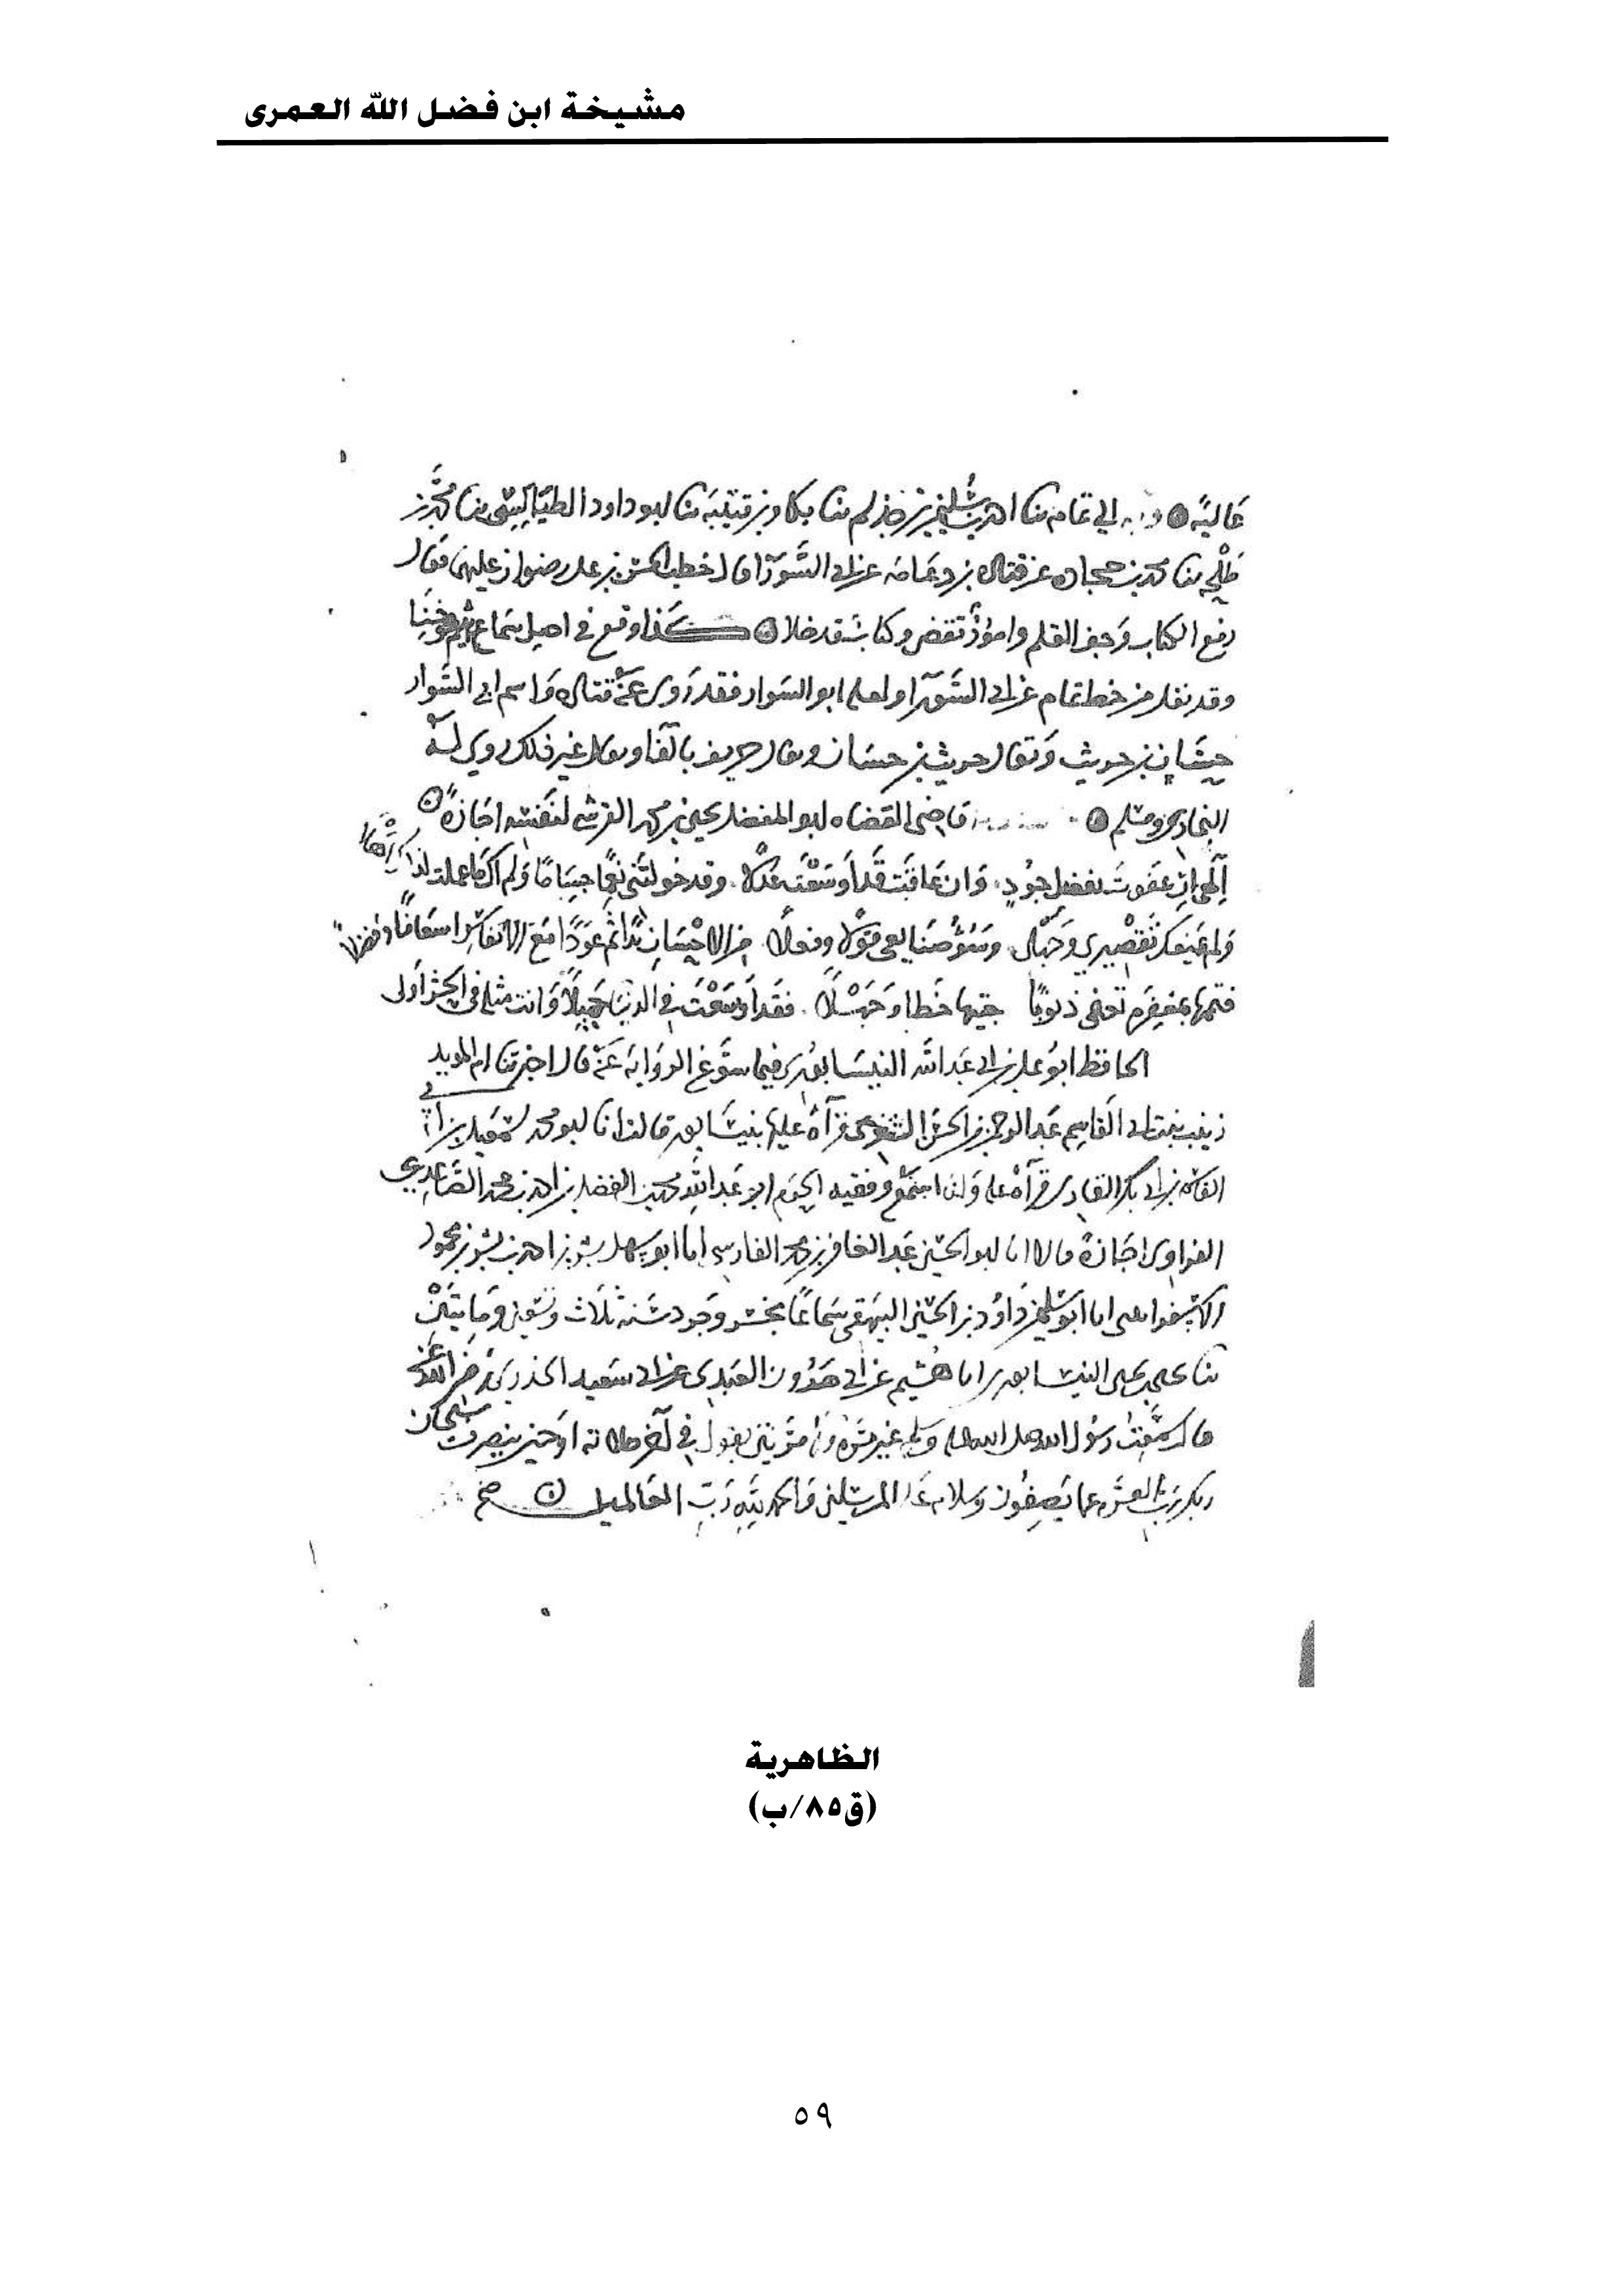 مشيخة ابن فضل الله العمرى
عاليًه إلى تمام بنا احمد بن سليمن بن حذلم بنا بكار بن قتيبة بنا ابو داود الطيالسي بنا محمد بن
طلحه بنا محمد بن حجاده عن قتاده بن دعامه عن ابي السَّورا قال خطب الحسن بن علي رضوان عليهما فقال
رفع الكتاب وَجف القلم وامورٌ تقضى وكتاب قد خلا كَذا وقع في اصل سماع شيوخنا
وقد نقل من خط تمام عن ابي السَّورا ولعله ابو السوار فقد رَوى عنهُ قتاده وَاسم ابي السَّوار
حسَّان بن حريث وَيقال حريث بن حسان ويقال حريف بالفا ويقال غير ذلك روي لهُ
البخاري ومسلم قاضي القضاه ابو المفضل يحيى بن محمد القرشي لنفسه اجازةً
اِلهي ان عفوتَ بفضل جُودٍ وَان عاقبَت قَد اَوسَعْتَ عَدلًا وقد خولتَني نِعمًا جِسَامًا وَلم اَك
وَلم يمنعك تَقْصيري وَجَهلي وسُوُ صنايعي قولًا وفعلًا من الاحْسَانِ
فتمها بمغفرةٍ تعفى ذنوبًا جنيتها خَطا وَجَهْلًا فقَد اَوسَعْتَ في الدنيَا جميلًا وَانت
الحافظ ابوُ علي بن ابي عَبد الله النيسَابوري فيما سوَّغ الروَايه عَنه قال اخبرتنا ام المويد
زينب بنت ابي القاسِم عَبد الرحمن بن الحسن الشعري قرآةً عليها بنيسَابور قالت انا ابو محمد اسمعيل بن ابي
القاسم بن ابي بكر القاري قرآةً عليه وَانا اسمَع وفقيه الحرَم ابو عَبد اللهِ محمد بن الفضل بن احمد بن محمد الصَّاعدِي
الفراوى اجَازةً قالا انا ابو الحسين عَبد الغافر بن محمد الفارسي انا ابو سهل بشر بن احمد بن بشر بن محمود
الاسفرايني انا ابو سليمن دَاوُد بن الحسين البيهقي سَماعًا بخسروجَرد سَنه ثلَاث وتسعين وَمايتَين
بنا يحيى بن يحيى النيسابوري انا هُشيم عن ابي هَرُون العَبدِى عن ابي سَعيد الخدري رَضي الله عنه
قال سَمعت رسُول الله صلى الله عليه وسلم غير مَرَّه وَلَا مرَّتين يقول في آخر صلاته اوحين ينصرف سبحان
ربك ربِّ العزه عما يَصِفُون وسلام عَلى المرسَلين وَالحمد لِلّهِ رَبِّ العَالمين صح
الظاهرية
(ق٨٥/ب)
٥٩